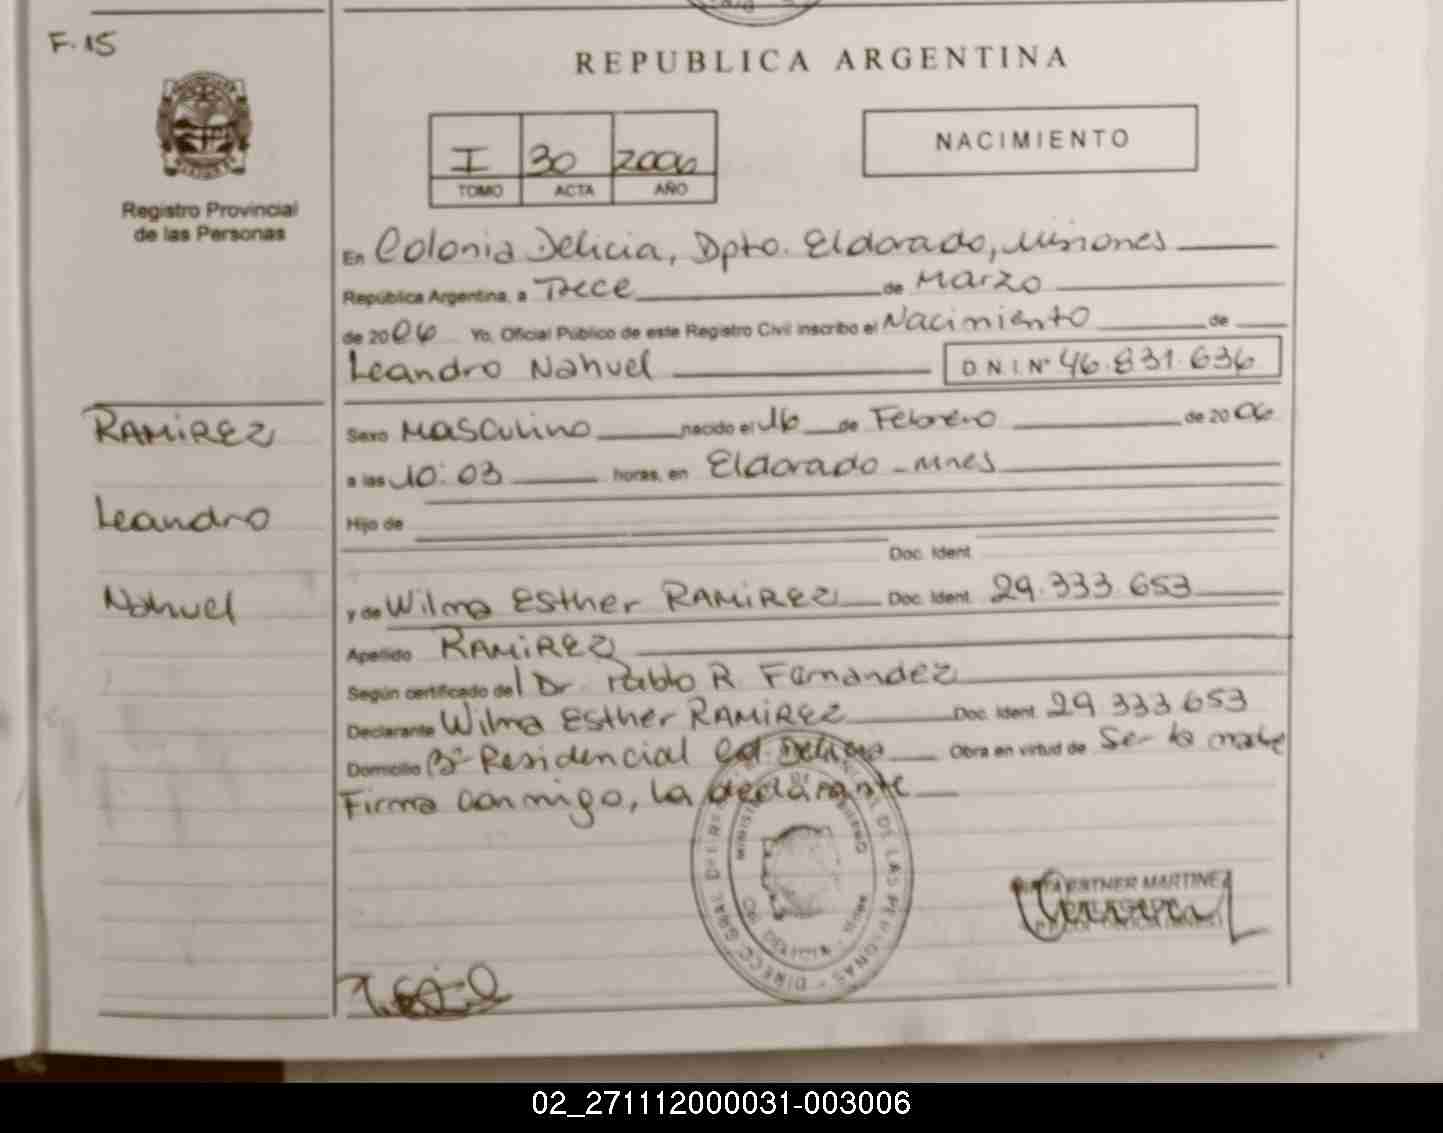 F. 15
REPUBLICA ARGENTINA
I 30 2006
TOMO ACTA AÑO
NACIMIENTO
Registro Provincial
de las Personas
En Colonia Delicia, Dpto. Eldorado, Misiones
República Argentina, a Trece de Marzo
de 2006 Yo, Oficial Público de este Registro Civil inscribo el Nacimiento de
Leandro Nahuel D N I Nº 46.831.636
RAMIREZ
Sexo Masculino nacido el 16 de Febrero de 2006
a las 10:03 horas, en Eldorado - Mnes
Leandro
Hijo de
Doc. Ident.
Nahuel
y de Wilma Esther RAMIREZ Doc. Ident. 29.333.653
Apellido RAMIREZ
Según certificado del Dr. Pablo R Fernandez
Declarante Wilma Esther RAMIREZ Doc. Ident. 29 333 653
Domicilio Bº Residencial Col Delicia Obra en virtud de Ser la madre
Firma conmigo, la declarante
DE LAS PERSONAS - DIRECC. GRAL.
ESTHER MARTINEZ
02_271112000031-003006